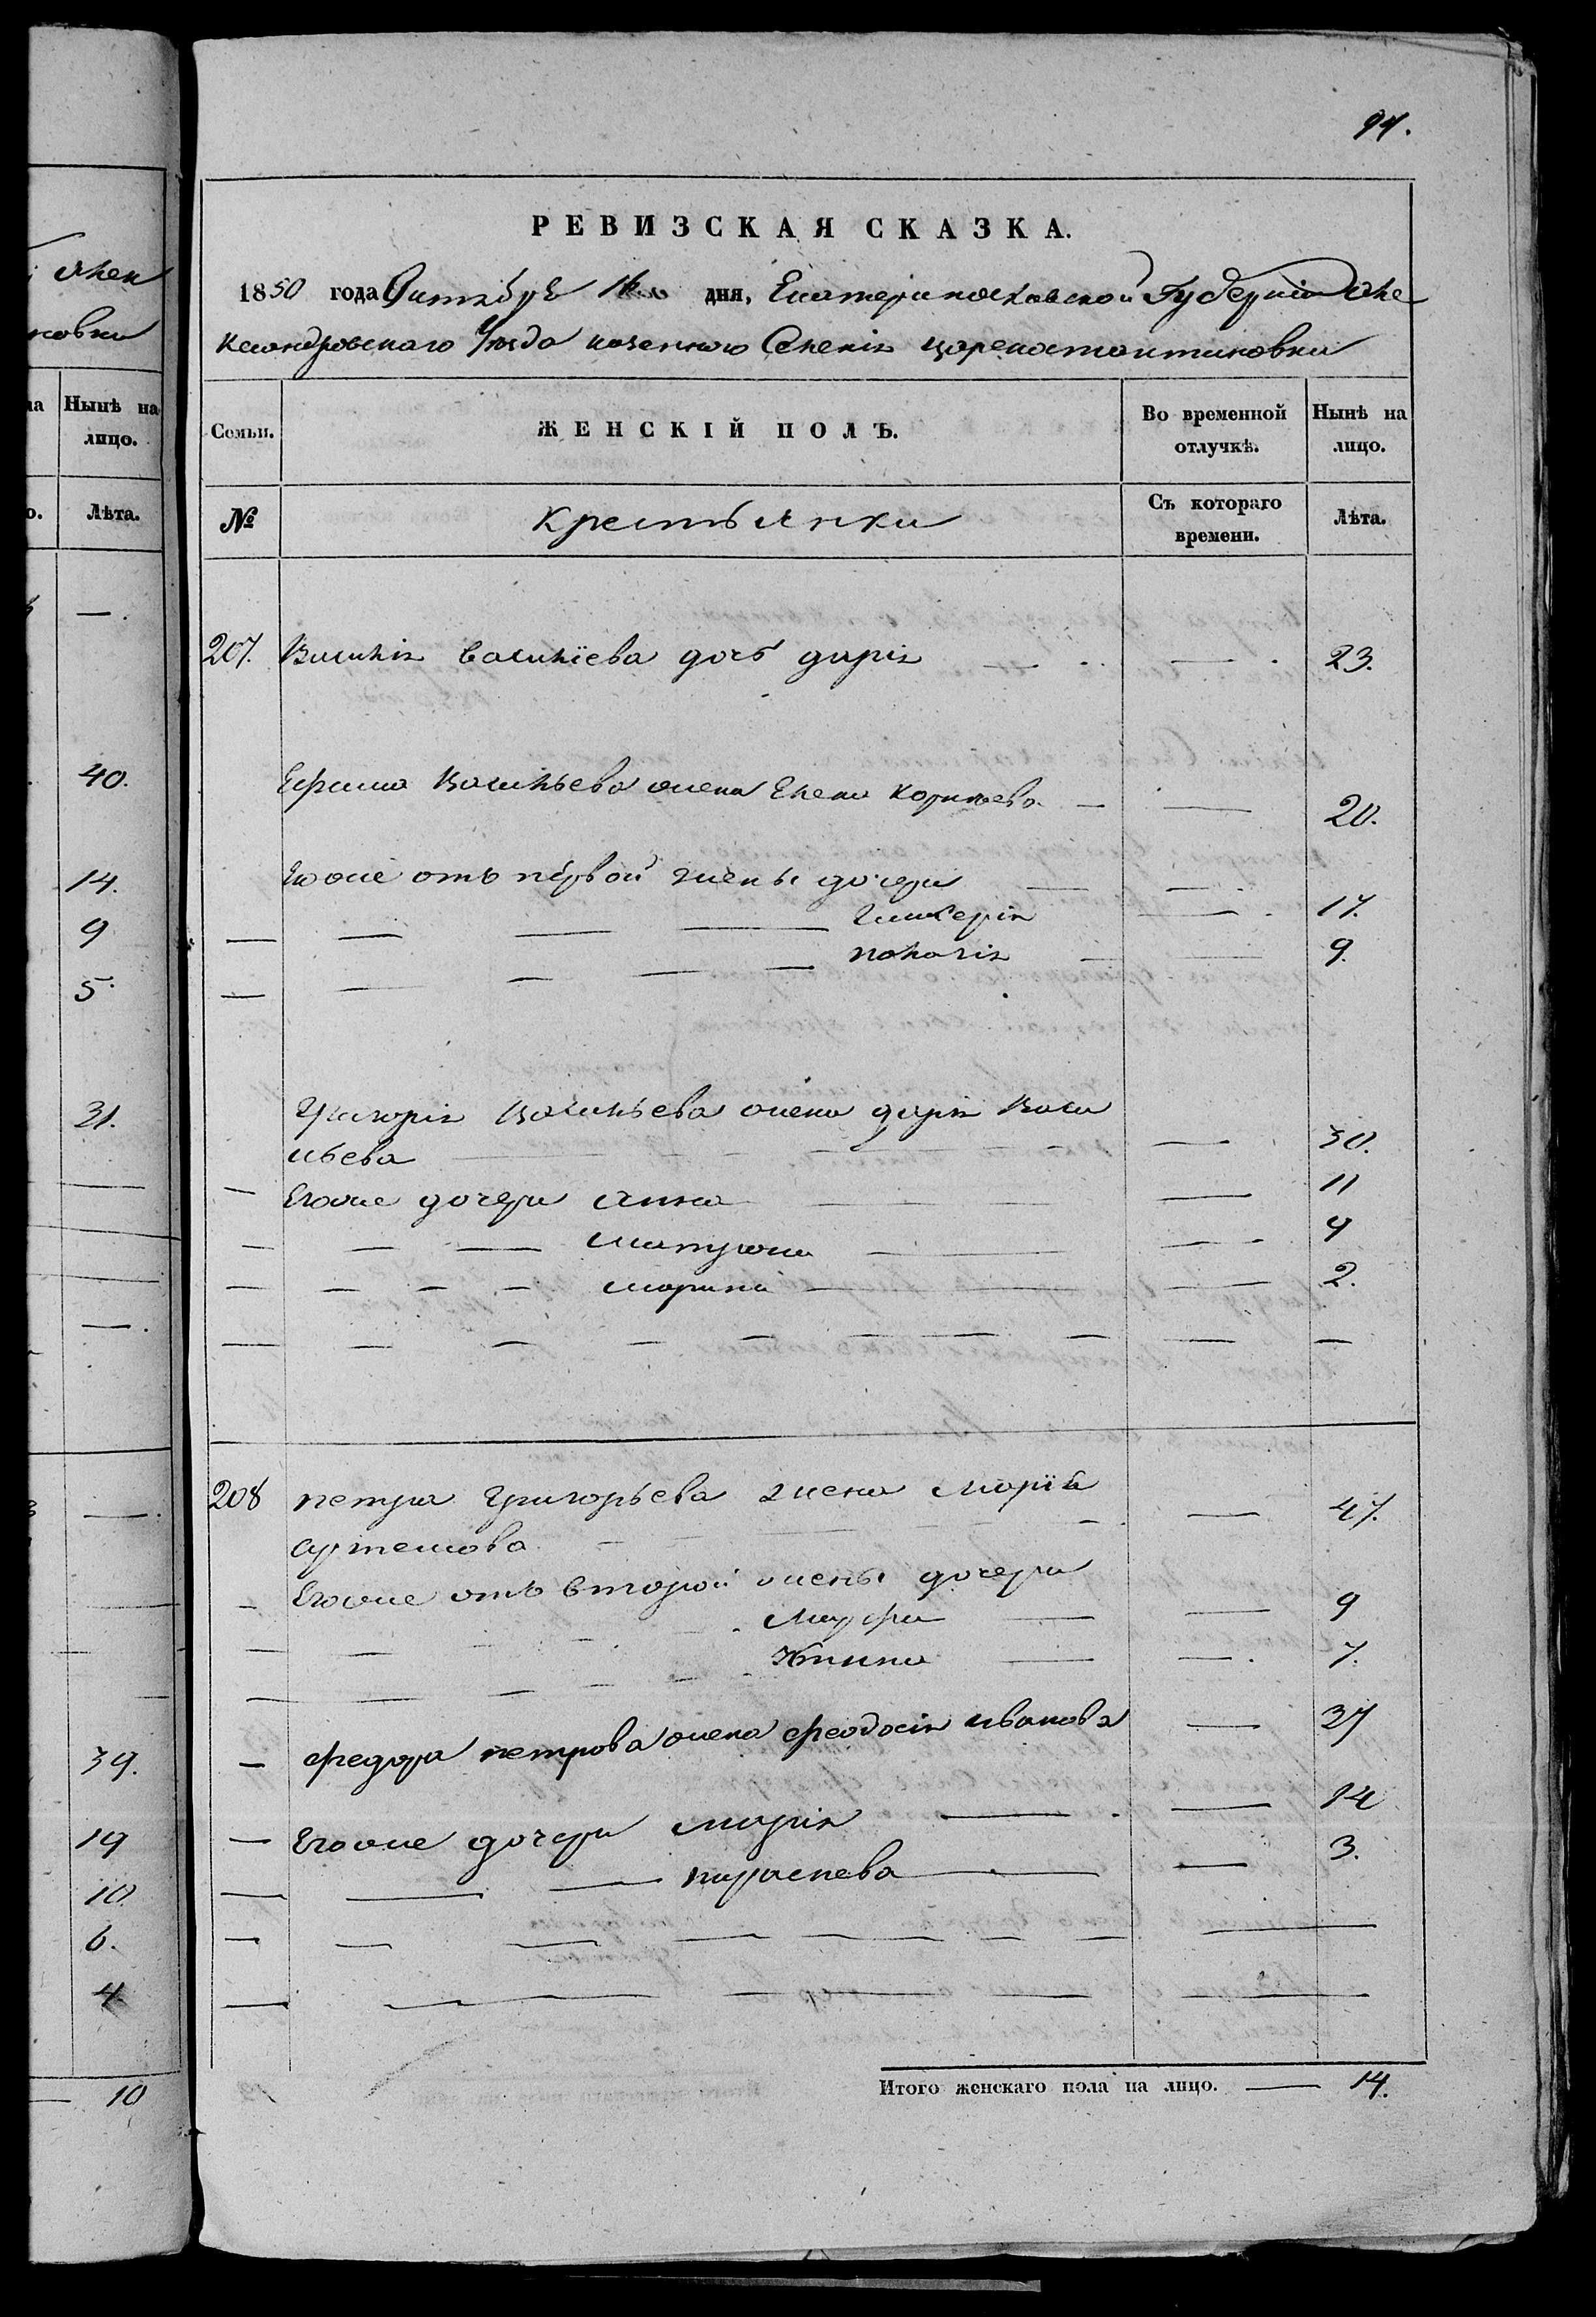 94.
РЕВИЗСКАЯ СКАЗКА.
1850 года Октября 1го дня, Екатеринославской Губернiи Але
ксандровскаго Уѣзда казеннаго Селенiя Цареконстантиновки
Семьи.
ЖЕНСКІЙ ПОЛЪ.
Во временной отлучкѣ.
Нынѣ на лицо.
№
Крестьянки
Съ котораго времени.
Лѣта.
207. Василiя Васильева дочь Дарiя — — 23.
Ефима Васильева жена Елена Корнѣева — — 20.
Егоже отъ первой жены дочери — —
Гликерiя — 17.
Полагiя — — 9.
Григорiя Васильева жена Дарiя Васи
льева — — 30.
Егоже дочери Анна — — 11
Матрона — — 4
Марина — — 2.
208 Петра Григорьева жена Марiя
Артемова — — 47.
Егоже отъ второй жены дочери
Марфа — — 9
— — 7.
Федора Петрова жена Феодосiя Иванова — 37
Егоже дочери Марiя — — 14
Параскева — — 3.
Итого женскаго пола на лицо. — 14.
Нынѣ на лицо.
Лѣта.
—
40.
14.
9
5.
31.
—
—
39.
19
10.
6.
4
10